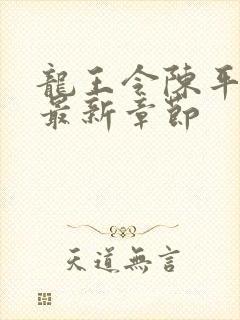 龍王令陳平
最新章節
天道無言